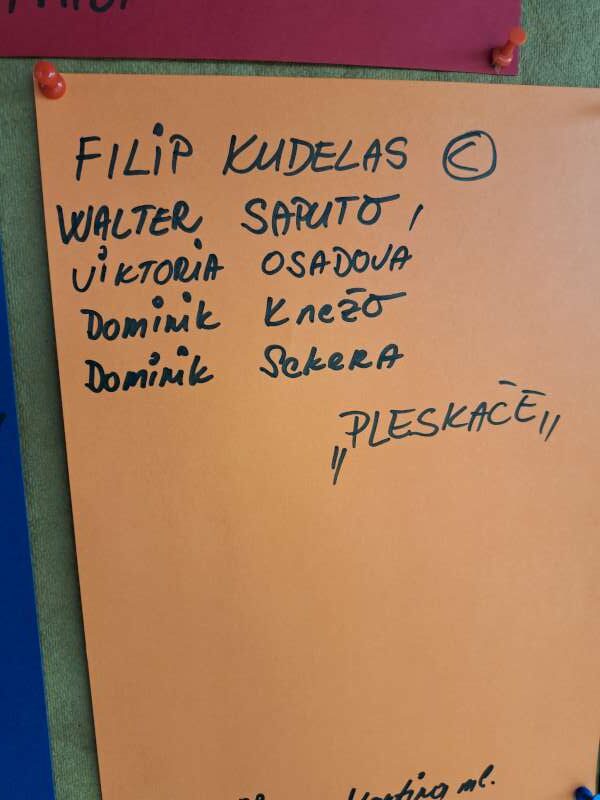 FILIP KUDELAS Ⓒ
WALTER SAPUTO,
VIKTORIA OSADOVA
Dominik Knežo
Dominik SekeRA
„PLESKAČE„
Martina ml.